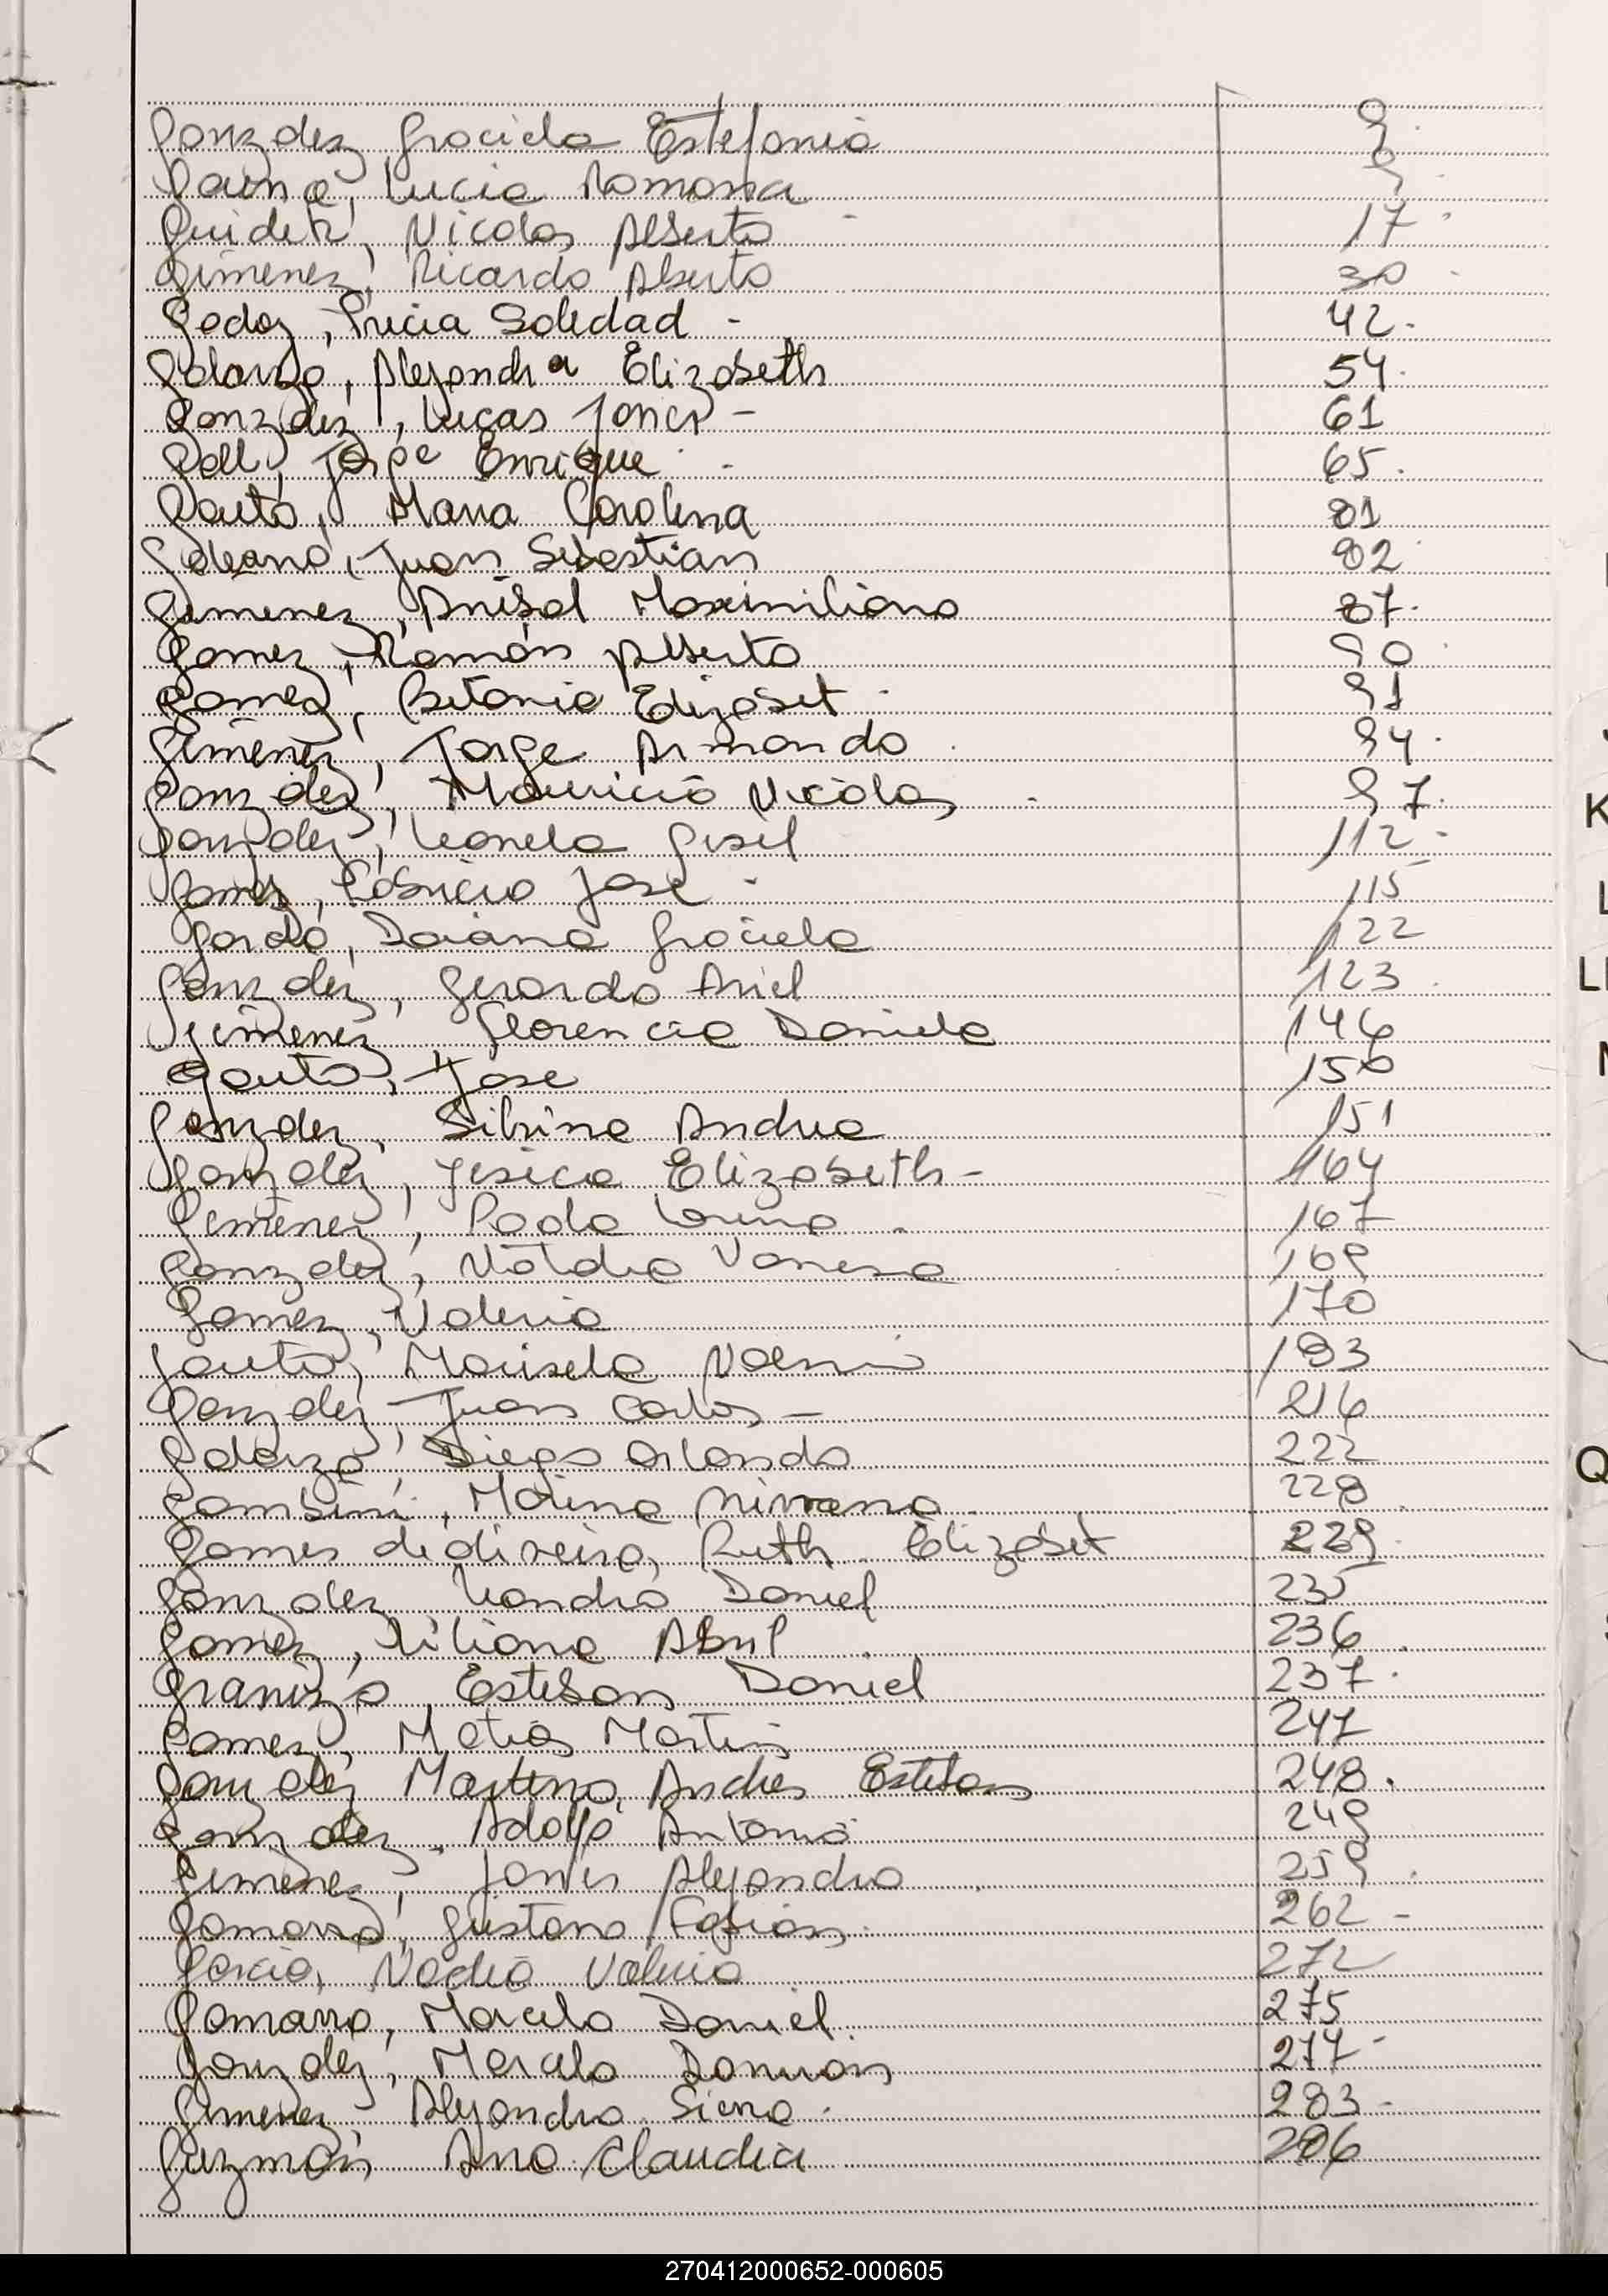 Gonzalez Graciela Estefania 9.
Gauna, Lucia Ramona 9.
Guidek, Nicolas Alberto - 17.
Gimenez, Ricardo Alberto 30.
Godoy, Soledad - 42.
Galarza, Alejandra Elizabeth 54.
Gonzalez, Lucas Javier - 61
Goll, Jorge Enrique. - 65.
Gauto, Maria Carolina 81
Galeano, Juan Sebastian 82
Gimenez, Anibal Maximiliano 87.
Gomez, Ramón Alberto 90.
Gomez, Betania Elizabet. 91
Gimenez, Jorge Armando. 94.
Gonzalez, Mauricio Nicolas. 97.
Gonzalez, Leonela Gisel 112-
Gomez, Fabricio Jose - 115
Daiana Graciela 122
Gonzalez, Gerardo Ariel 123.
Gimenez Florencia Daniela 146
Gauto, Jose 150
Gonzalez, Silvina Andrea 151
Gonzalez, Jesica Elizabeth - 164
Gimenez, Paola Lorena. 167
Gonzalez, Natalia Vanesa 169
Gomez, Valeria 170
Gauto, Marisela Noemi 183
Gonzalez, Juan Carlos - 216
Galarza, Diego Orlando 222
Gambini, Marina 228.
Gomes de Oliveira, Ruth Elizabet 229.
Gonzalez Leandro Daniel 235
Gomez, Liliana Abril. 236.
Esteban Daniel 237.
Gomez, Matias Martin 247
Gonzalez Martino, Andres Esteban 248.
Gonzalez, Adolfo Antonio 249
Gimenez, Javier Alejandro. 259.
Gamarra, Gustavo Fabian. 262-
Garcia, Nadia Valeria 272
Gamarra, Marcelo Daniel. 275
Gonzalez, Marcelo Damian 277-
Gimenez Alejandra 283-
Guzmán, Ana Claudia 286
K
L
Q
270412000652-000605